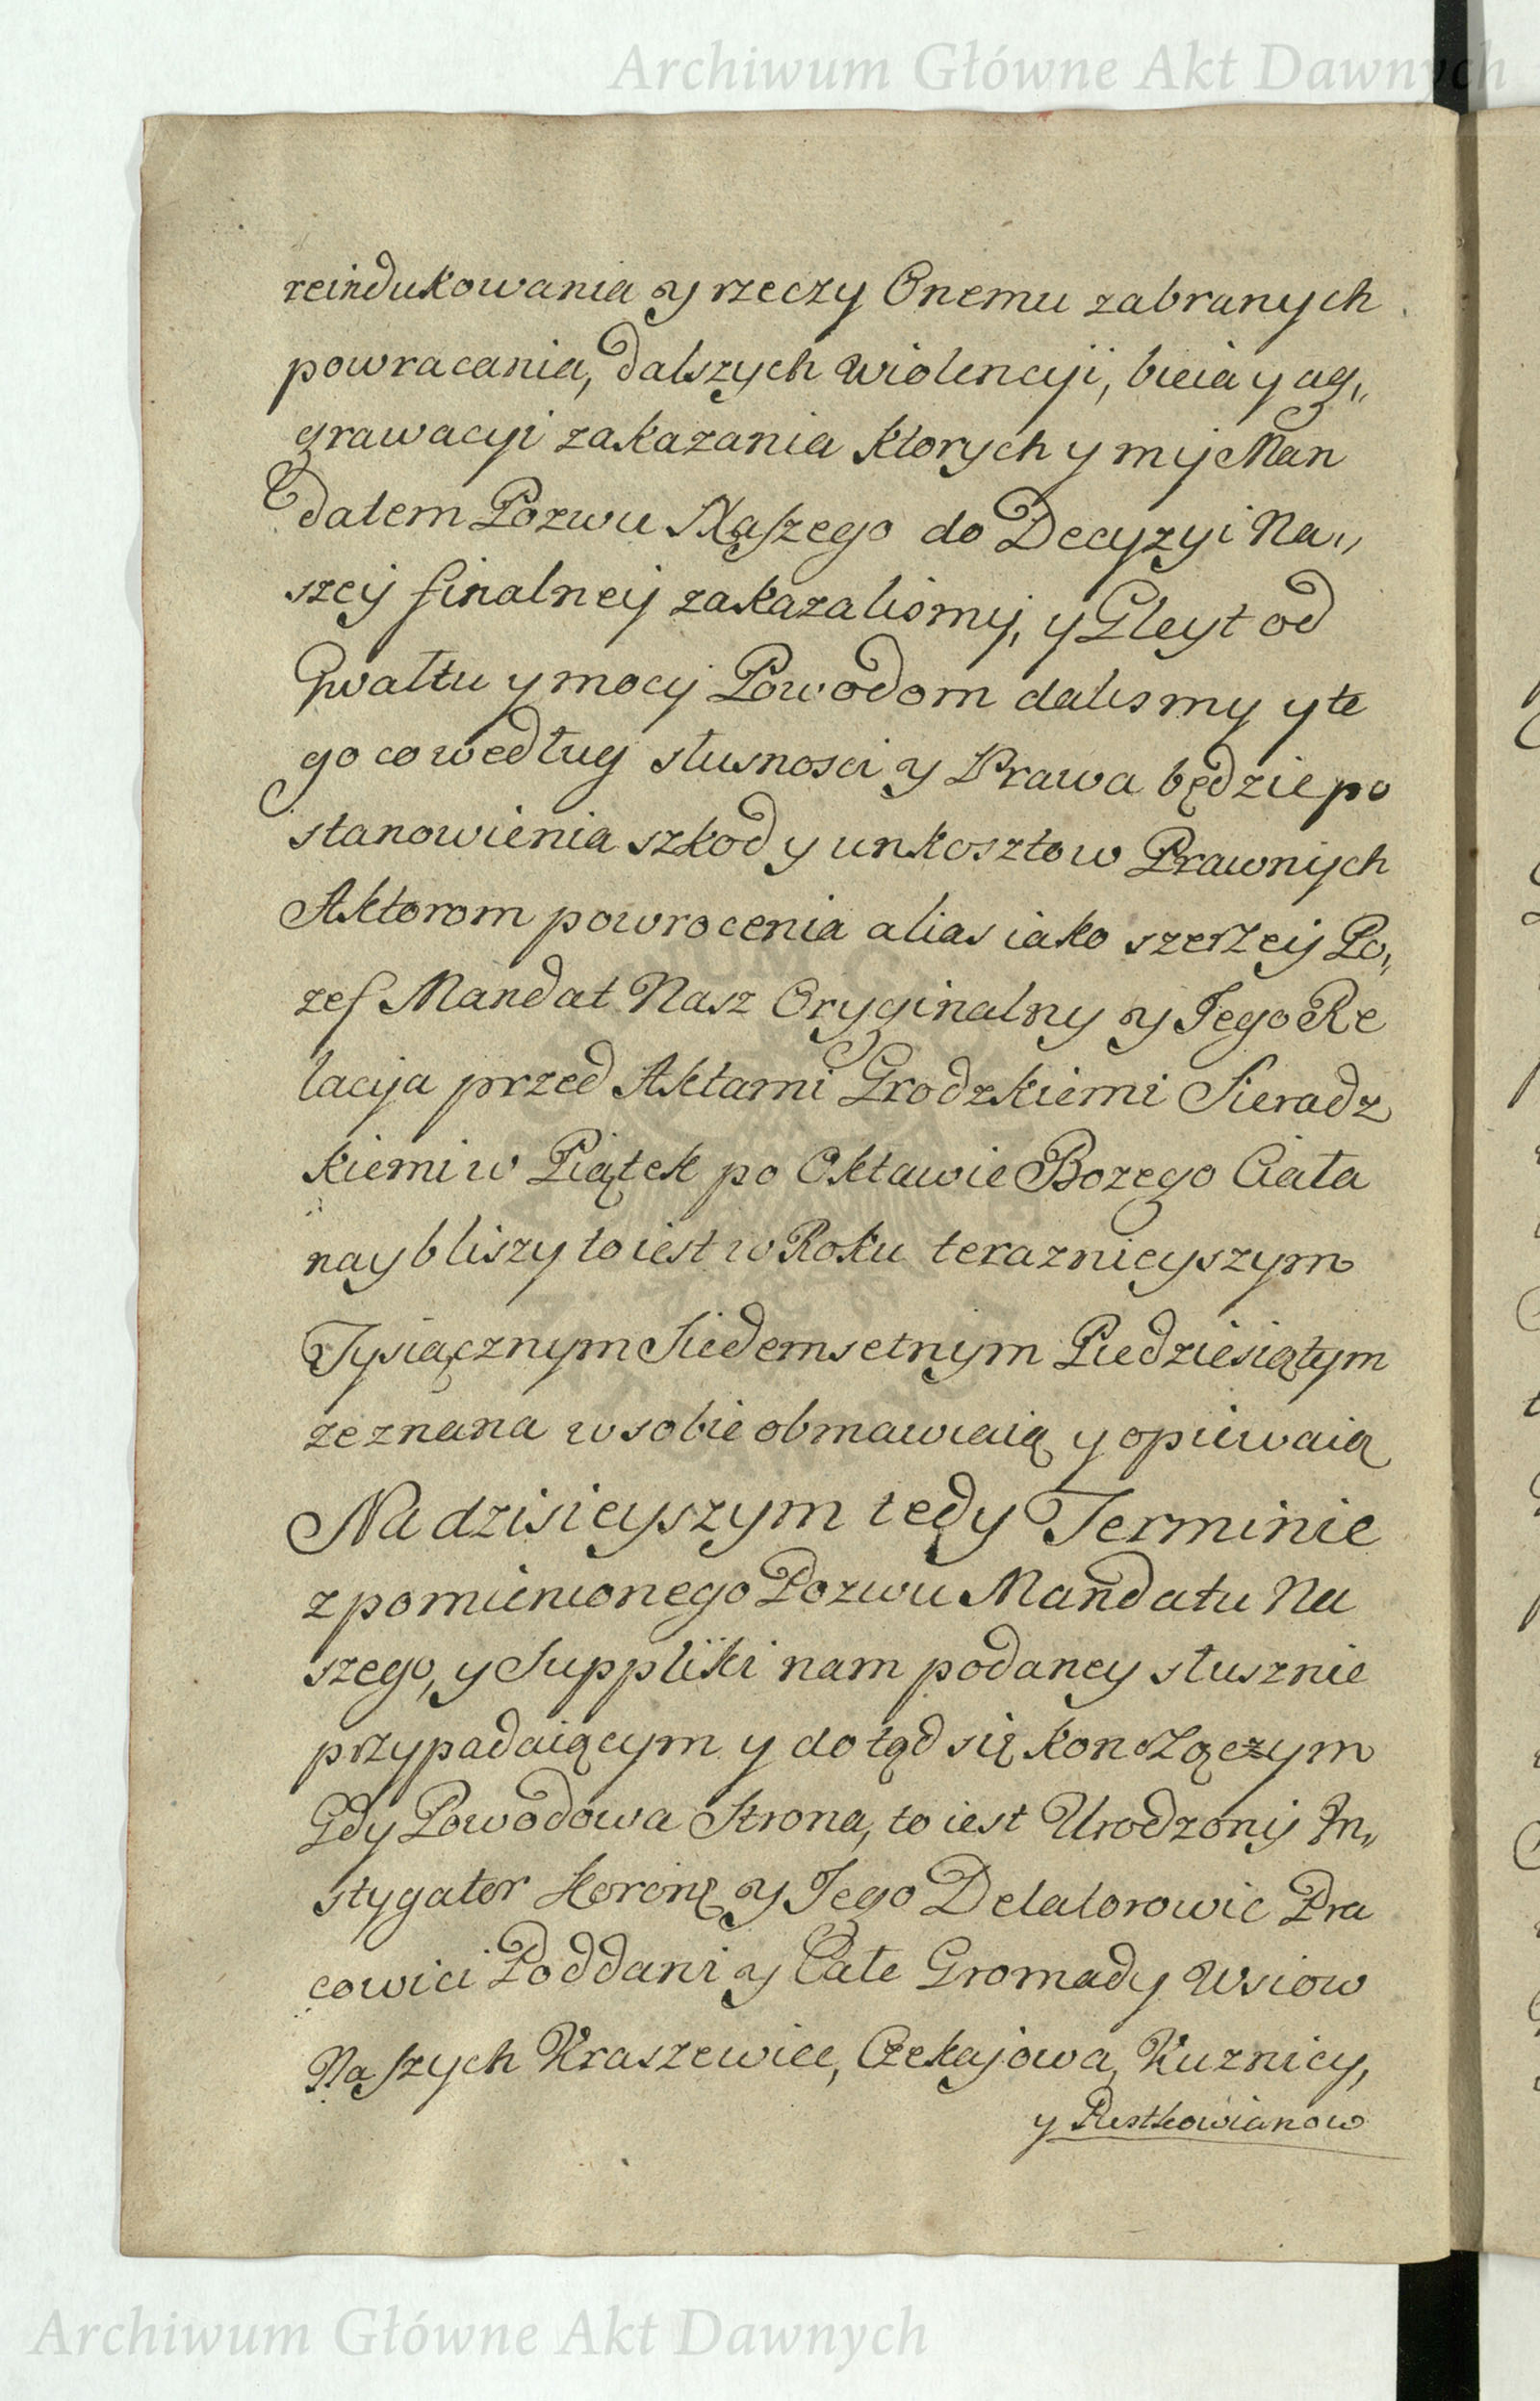 Archiwum Główne Akt Dawnych
reindukowania y rzeczy Onemu zabranych
powracania, dalszych wiolencyi, bicia y ag„
grawacyi zakazania ktorych y my Man
datem Pozwu Naszego do Decyzyi Na„
szey finalney zakazalismy, y Gleyt od
Gwałtu y mocy Powodom dalismy y te
go co według słusnosci y Prawa będzie po
stanowienia szkod y unkosztow Prawnych
Aktorom powrocenia alias iako szerzey Po„
zef Mandat Nasz Oryginalny y Jego Re
lacya przed Aktami Grodzkiemi Sieradz
kiemi w Piątek po Oktawie Bozego Ciała
naybliszy to iest w Roku teraznieyszym
Tysiącznym Siedemsetnym Piedziesiątym
zeznana w sobie obmawiaią y opiewaią
Na dzisieyszym tedy Terminie
z pomienionego Pozwu Mandatu Na
szego, y Suppliki nam podaney słusznie
przypadaiącym y dotąd się konczączym
Gdy Powodowa Strona, to iest Urodzony In„
stygator Koronę y Jego Delatorowie Pra
cowici Poddani y Całe Gromady Wsiow
Naszych Kraszewice, Czekajowa, Kuznicy,
y Rustkowianow
Archiwum Główne Akt Dawnych